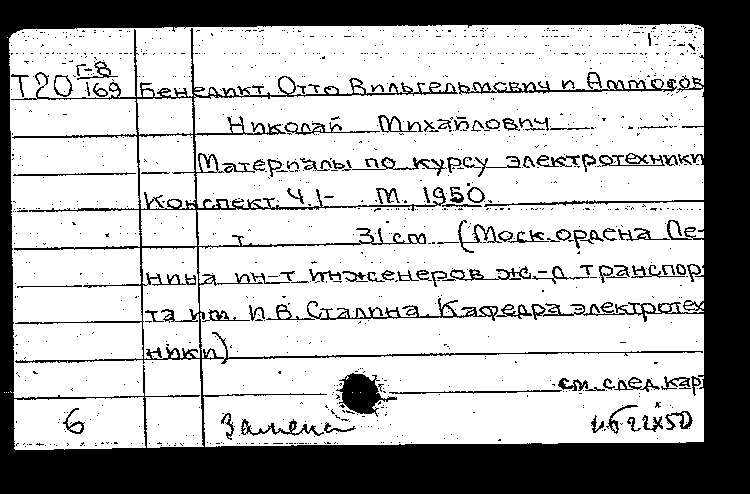 Т20 Г-8/169 Бенедикт, Отто Вильгельмович и Аммосов,
Николай Михайлович
Материалы по курсу электротехники
Конспект. Ч. 1- М., 1950.
т. 31 см (Моск. ордена Ле-
нина ин-т инженеров ж.-д. транспор-
та им. И.В. Сталина. Кафедра электротех-
ники)
см. след. карт
6 Замена иб 22X50